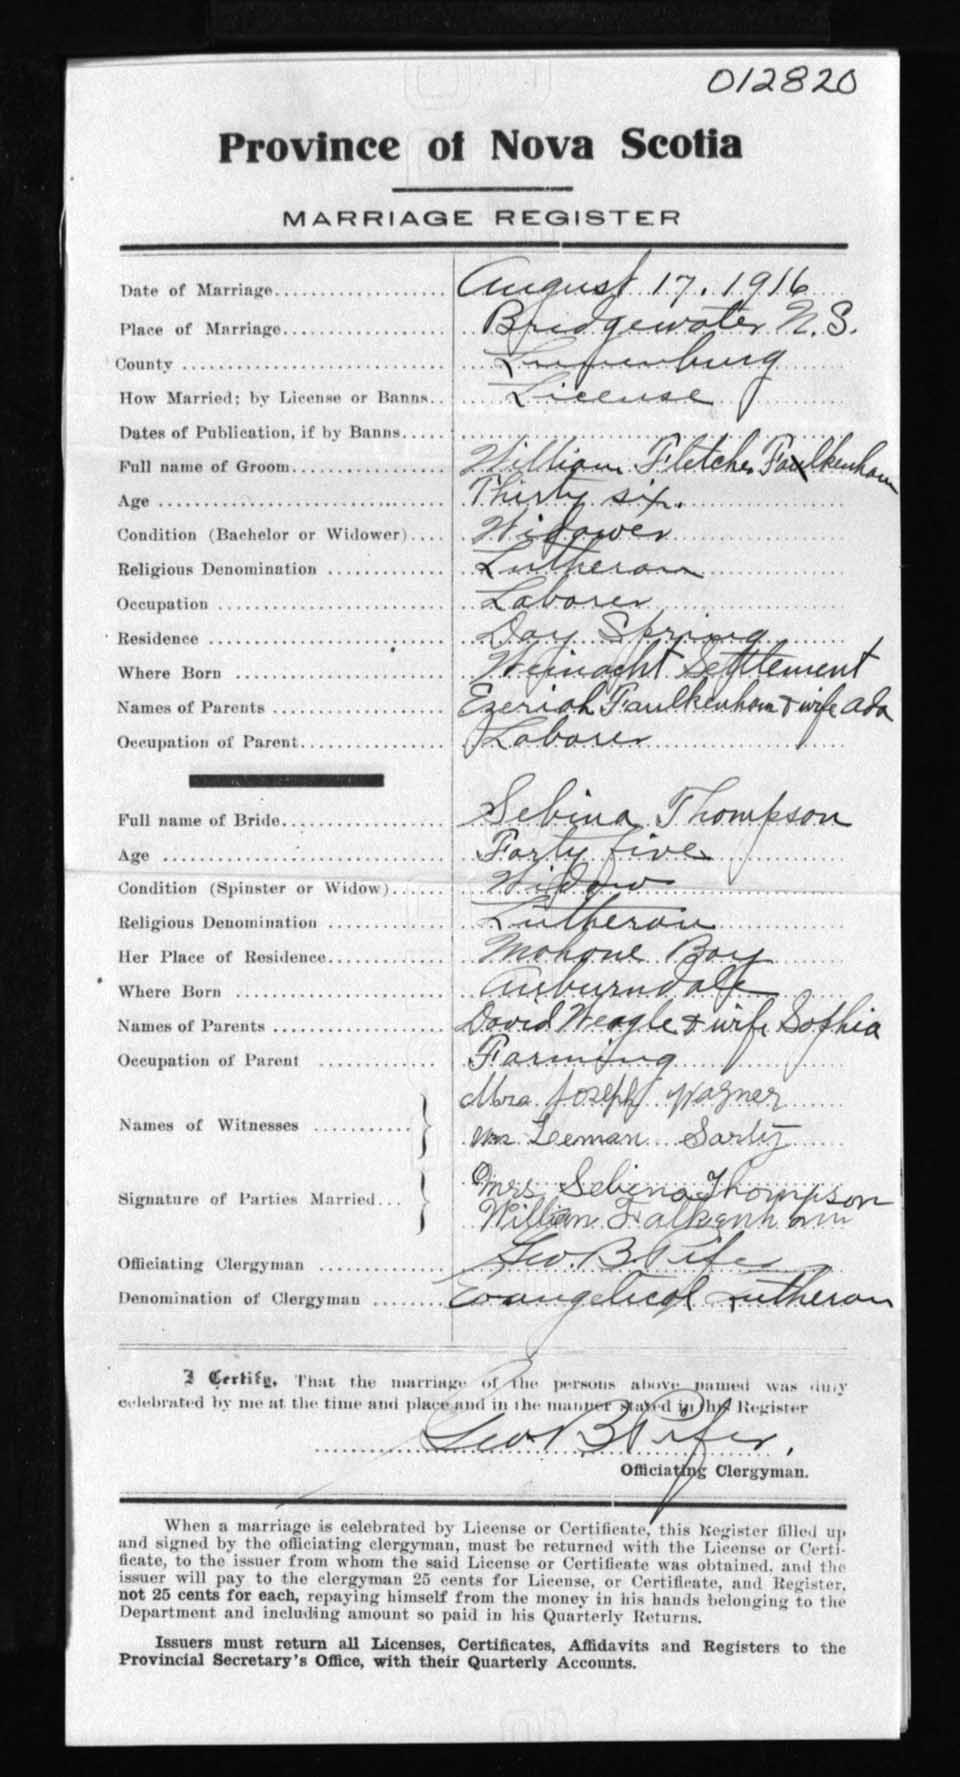 012820
Province of Nova Scotia
MARRIAGE REGISTER
Date of Marriage.................... August 17. 1916
Place of Marriage.................... Bridgewater N.S.
County .................... Lunenburg
How Married; by License or Banns.. License
Dates of Publication, if by Banns.....
Full name of Groom.................... William Fletcher Faulkenham
Age .................... Thirty six.
Condition (Bachelor or Widower).... Widower
Religious Denomination .................... Lutheran
Occupation .................... Laborer
Residence .................... Day Spring
Where Born .................... Weinacht Settlement
Names of Parents .................... Ezeriah Faulkenham & wife Ada
Occupation of Parent.................... Laborer
Full name of Bride.................... Sebina Thompson
Age .................... Forty five
Condition (Spinster or Widow)...... Widow
Religious Denomination .................... Lutheran
Her Place of Residence.................... Mahone Bay
Where Born .................... Auburndale
Names of Parents .................... David Weagle & wife Sophia
Occupation of Parent .................... Farming
Mrs. Joseph Wagner
Names of Witnesses ...........
Leman Sarty
Mrs Sebina Thompson
Signature of Parties Married...
William Falkenham
Officiating Clergyman .................... Geo. B Pifer
Denomination of Clergyman ........ Evangelical Lutheran
I Certify, That the marriage of the persons above named was duly
celebrated by me at the time and place and in the manner stated in this Register
Geo B Pifer.
Officiating Clergyman.
When a marriage is celebrated by License or Certificate, this Register filled up
and signed by the officiating clergyman, must be returned with the License or Certi-
ficate, to the issuer from whom the said License or Certificate was obtained, and the
issuer will pay to the clergyman 25 cents for License, or Certificate, and Register,
not 25 cents for each, repaying himself from the money in his hands belonging to the
Department and including amount so paid in his Quarterly Returns.
Issuers must return all Licenses, Certificates, Affidavits and Registers to the
Provincial Secretary's Office, with their Quarterly Accounts.